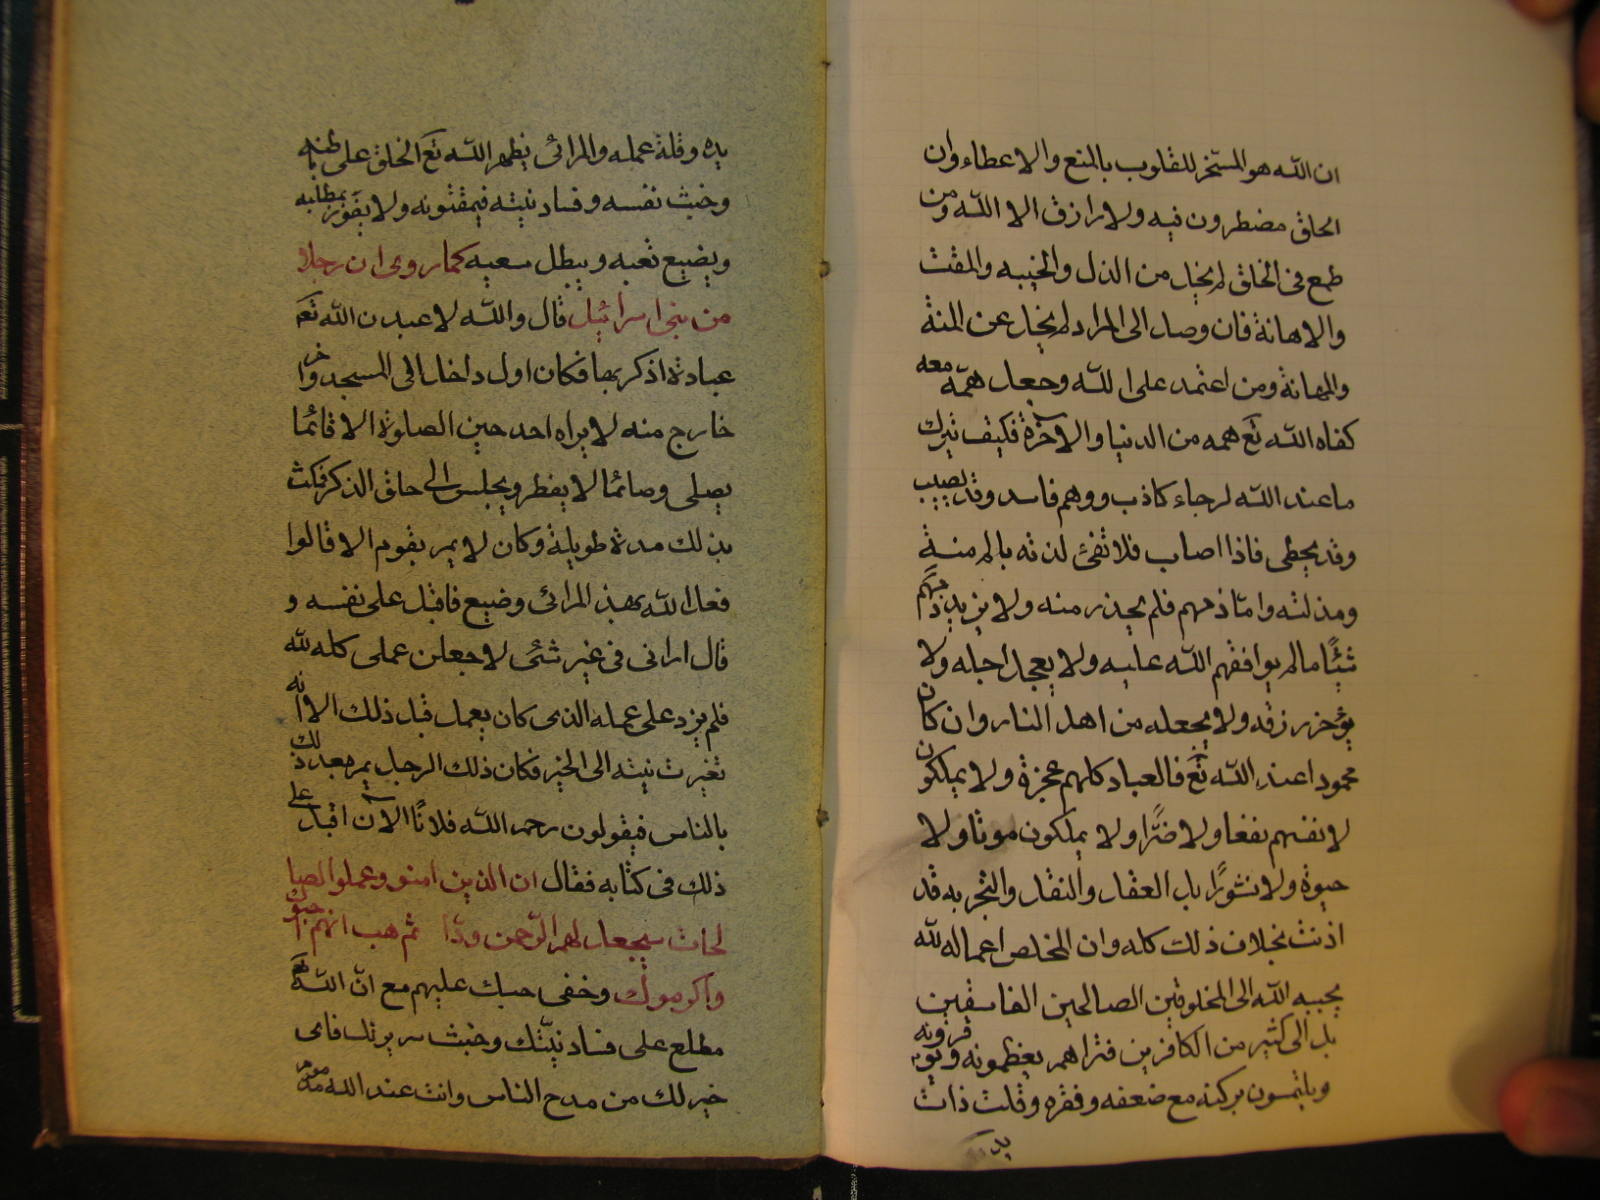 ان الله هو المسخر للقلوب بالمنع والاعطاء وان
الخلق مضطرون فيه ولا رازق الا الله ومن
طمع فى الخلق لم يخل من الذل والخيبه والمقت
والاهانة فان وصل الى المراد لم يخل عن المنة
والمهانة ومن اعتمد على الله وجعل همّه معه
كفاه الله تع همه من الدنيا والآخرة فكيف تترك
ما عند الله لرجاء كاذب ووهم فاسد وقد يصيب
وقد يخطى فاذا اصاب فلا تفئ لذته بالم منة
ومذلته وامّا ذمهم فلم يحذر منه ولا يزيد ذمّهم
شئًا ما لم يوافقهم الله عليه ولا يعجل اجله ولا
يؤخر رزقه ولا يجعله من اهل النار وان كان
محمودا عند الله تع فالعباد كلهم عجزة ولا يملكون
لانفسهم نفعا ولا ضرًّا ولا يملكون موتا ولا
حيوة ولا نشورًا بل العقل والنقل والتجربه قد
اذنت بخلاف ذلك كله وان المخلص اعماله لله
يحببه الله الى المخلوقين الصالحين الفاسقين
بل الى كثير من الكافرين فتراهم يعظمونه ويوقرونه
ويلتمسون بركته مع ضعفه وفقره وقلت ذات
يد
يده وقلة عمله والمرائى يظهر الله تع الخلق على باطنه
وخبث نفسه وفساد نيته فيمقتونه ولا يفوز بمطلبه
ويضيع تعبه ويبطل سعيه كما روى ان رجلا
من بنى اسرائيل قال والله لاعبدن الله تع
عبادة اذكر بها فكان اول داخل الى المسجد وآخر
خارج منه لا يراه احد حين الصلوة الا قائما
يصلى وصائما لا يفطر ويجلس الى حلق الذكر فمكث
بذلك مدة طويلة وكان لا يمر بقوم الا قالوا
فعل الله بهذ المرائى وضيع فاقبل على نفسه و
قال ارانى فى غير شئى لاجعلن عملى كله لله
فلم يزد على عمله الذى كان يعمل قبل ذلك الا انه
تغيرت نيته الى الخير فكان ذلك الرجل يمر بعد ذلك
بالناس فيقولون رحم الله فلانًا الآن اقبل على
ذلك فى كتابه فقال ان الذين امنو وعملوا الصا
لحات سيجعل لهم الرّحمن ودّا ثم هب انهم احبوك
واكرموك وخفى حبك عليهم مع انّ الله تع
مطلع على فساد نيّتك وخبث سريرتك فاى
خير لك من مدح الناس وانت عند الله مذموم